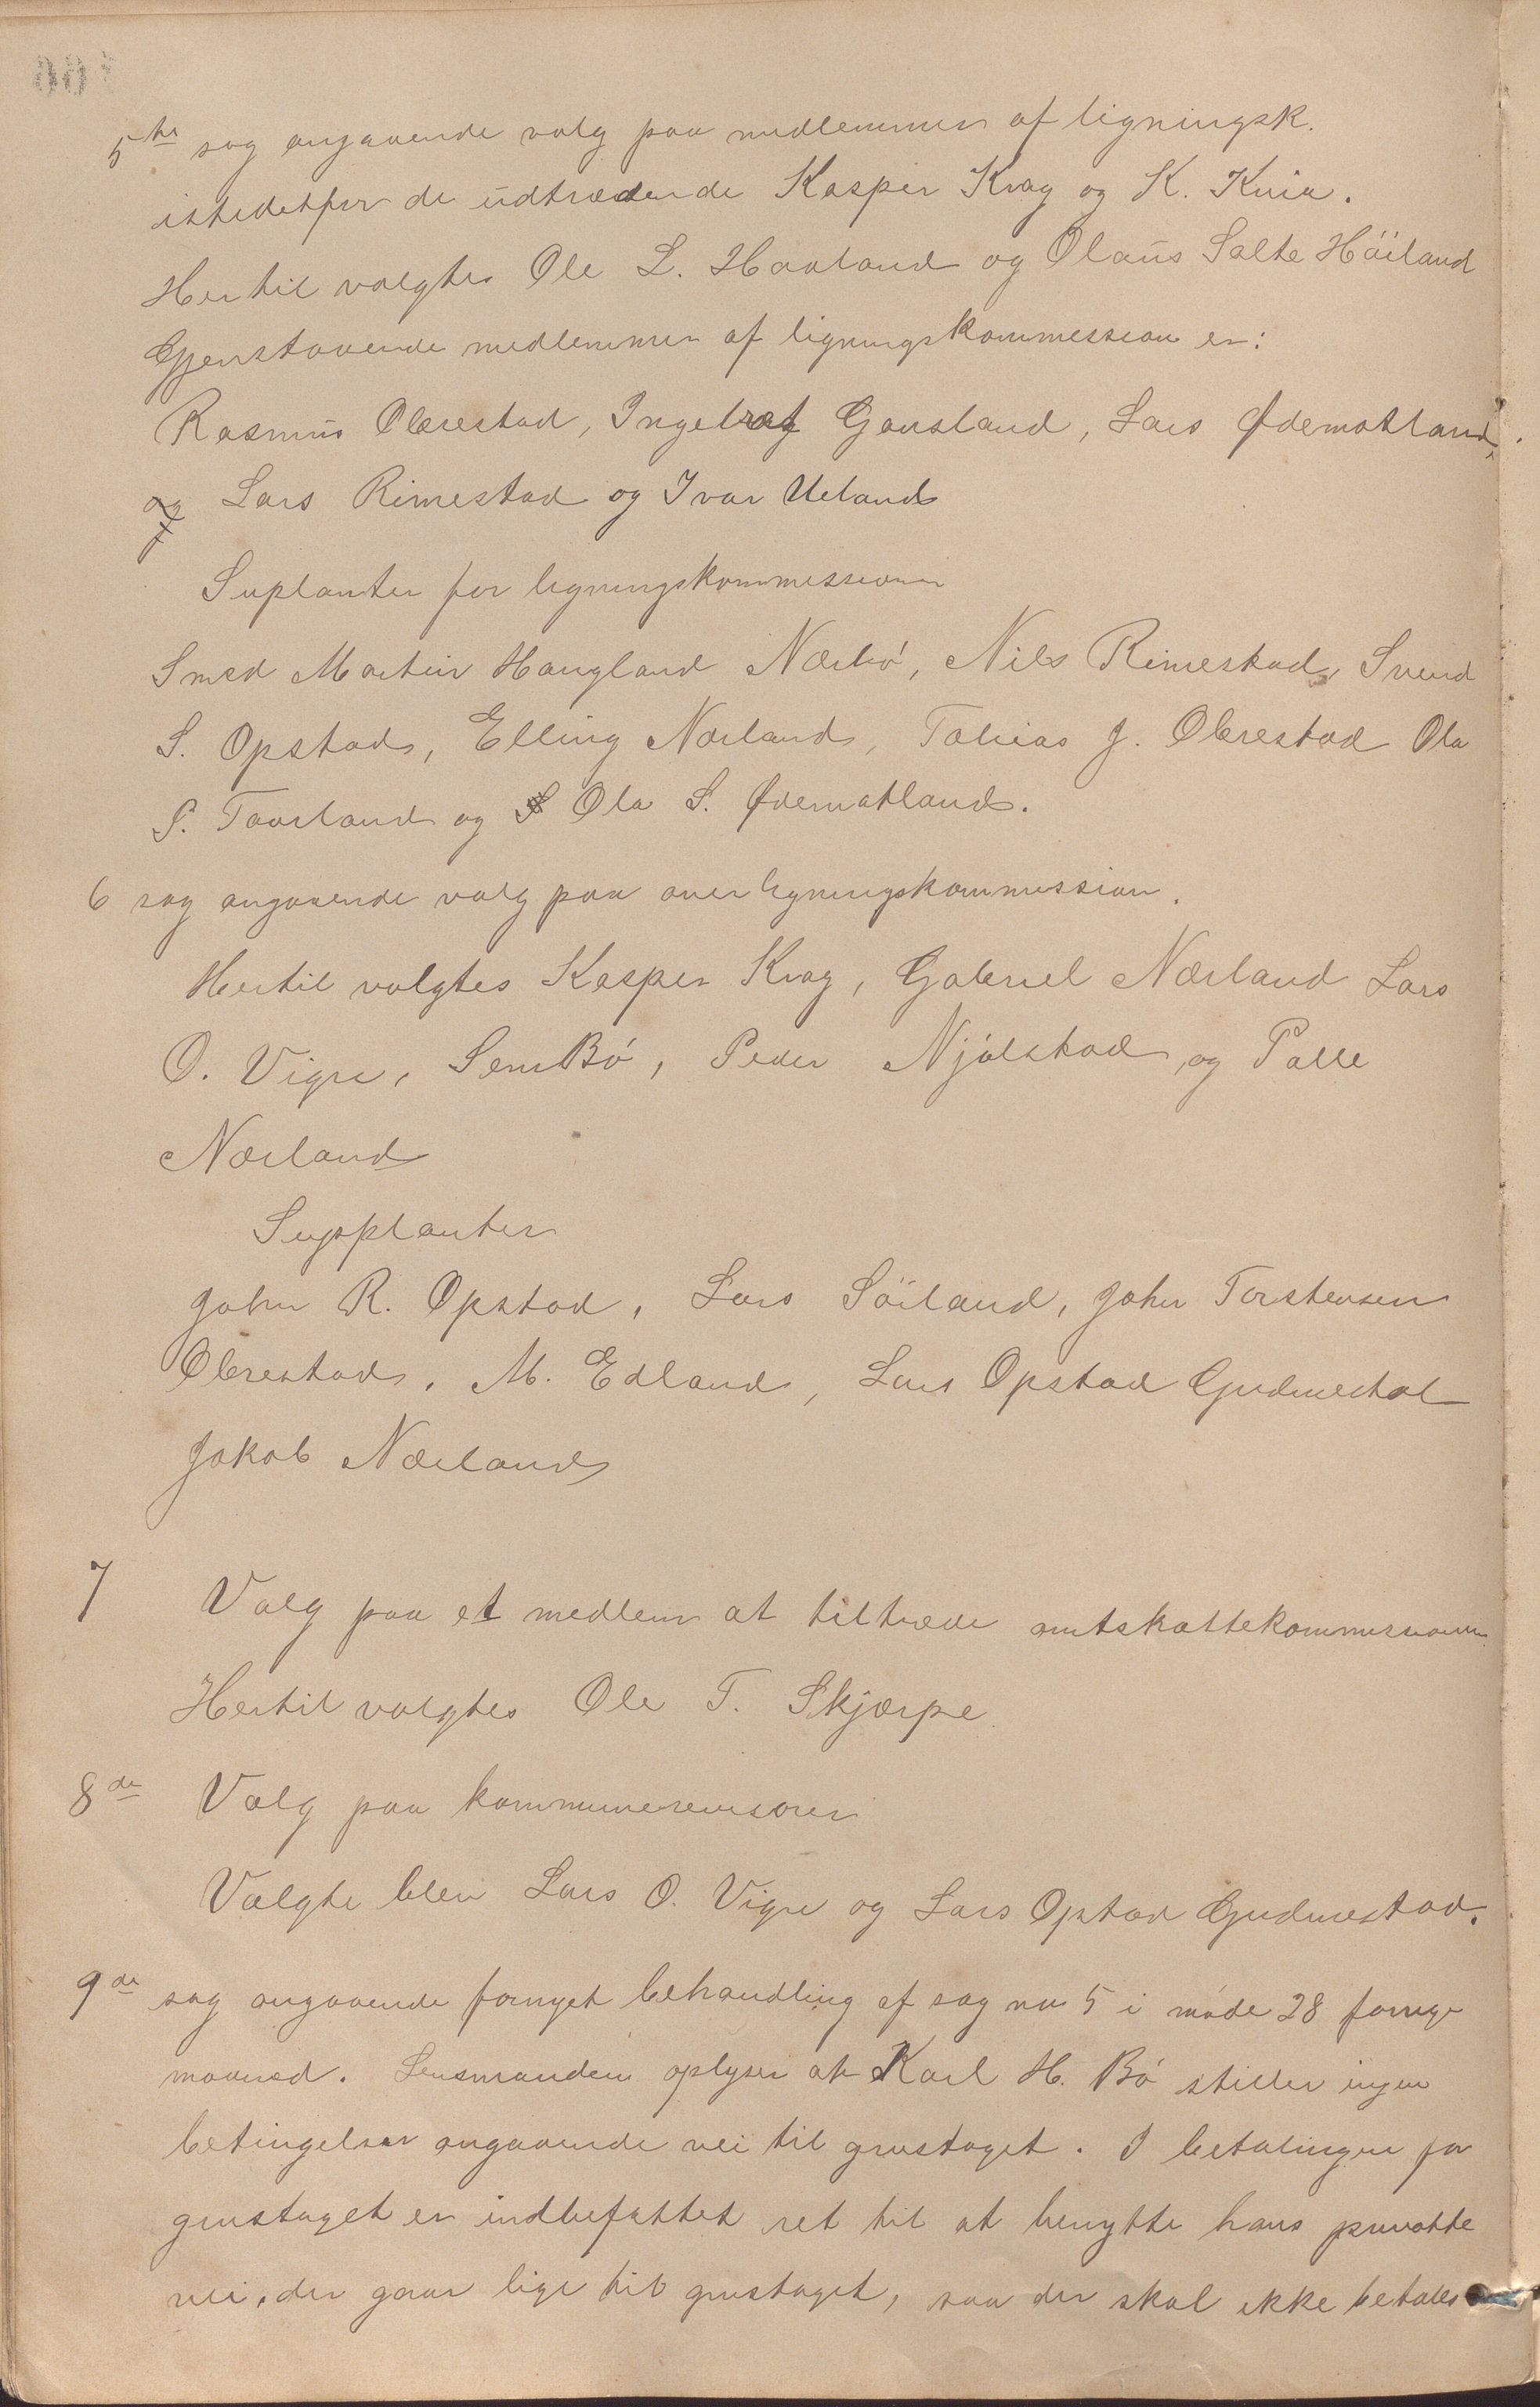 5te sag angaaende valg paa medlemmer af ligningsk.
istedetfor de udtrædende Kasper Kvag og K. Kvia.
Hertil valgtes Ole L. Haaland og Olaus Salte Höiland
Gjenstaaende medlemmer af ligningskommession er:
Rasmus Obrestad, Ingebret Gausland, Lars Ødemotland,
og Lars Rimestad og Ivar Ueland
Suplanter for ligningskommessionen
Smed Martin Haugland Nærbø, Nils Rimestad, Svend
S. Opstad, Elling Nærland, Tobias J. Obrestad Ola
P. Taarland og Ola S. Ødemotland.
6 sag angaaende valg paa overligningskommission.
Hertil valgtes Kasper Kvag, Gabriel Nærland Lars
O. Vigre, Sem Bö, Peder Njölstad og Palle
Nærland
Supplanter
John R. Opstad, Lars Söiland, John Torstensen
Obrestad, M. Edland, Lars Opstad Gudmestad
Jakob Nærland
7 Valg paa et medlem at tiltræde amtskattekommissionen.
Hertil valgtes Ole T. Skjærpe.
8de Valg paa kommunerevisorer
Valgte blev Lars O. Vigre og Lars Opstad Gudmestad.
9de sag angaaende fornyet behandling af sag no 5 i möde 28 forrige
maaned. Lensmanden oplyser at Karl H. Bö stiller ingen
betingelser angaaende vei til grustaget. I betalingen for
grustaget er indbefattet ret til at benytte hans privatte
vei, der gaar lige til grustaget, saa der skal ikke betales